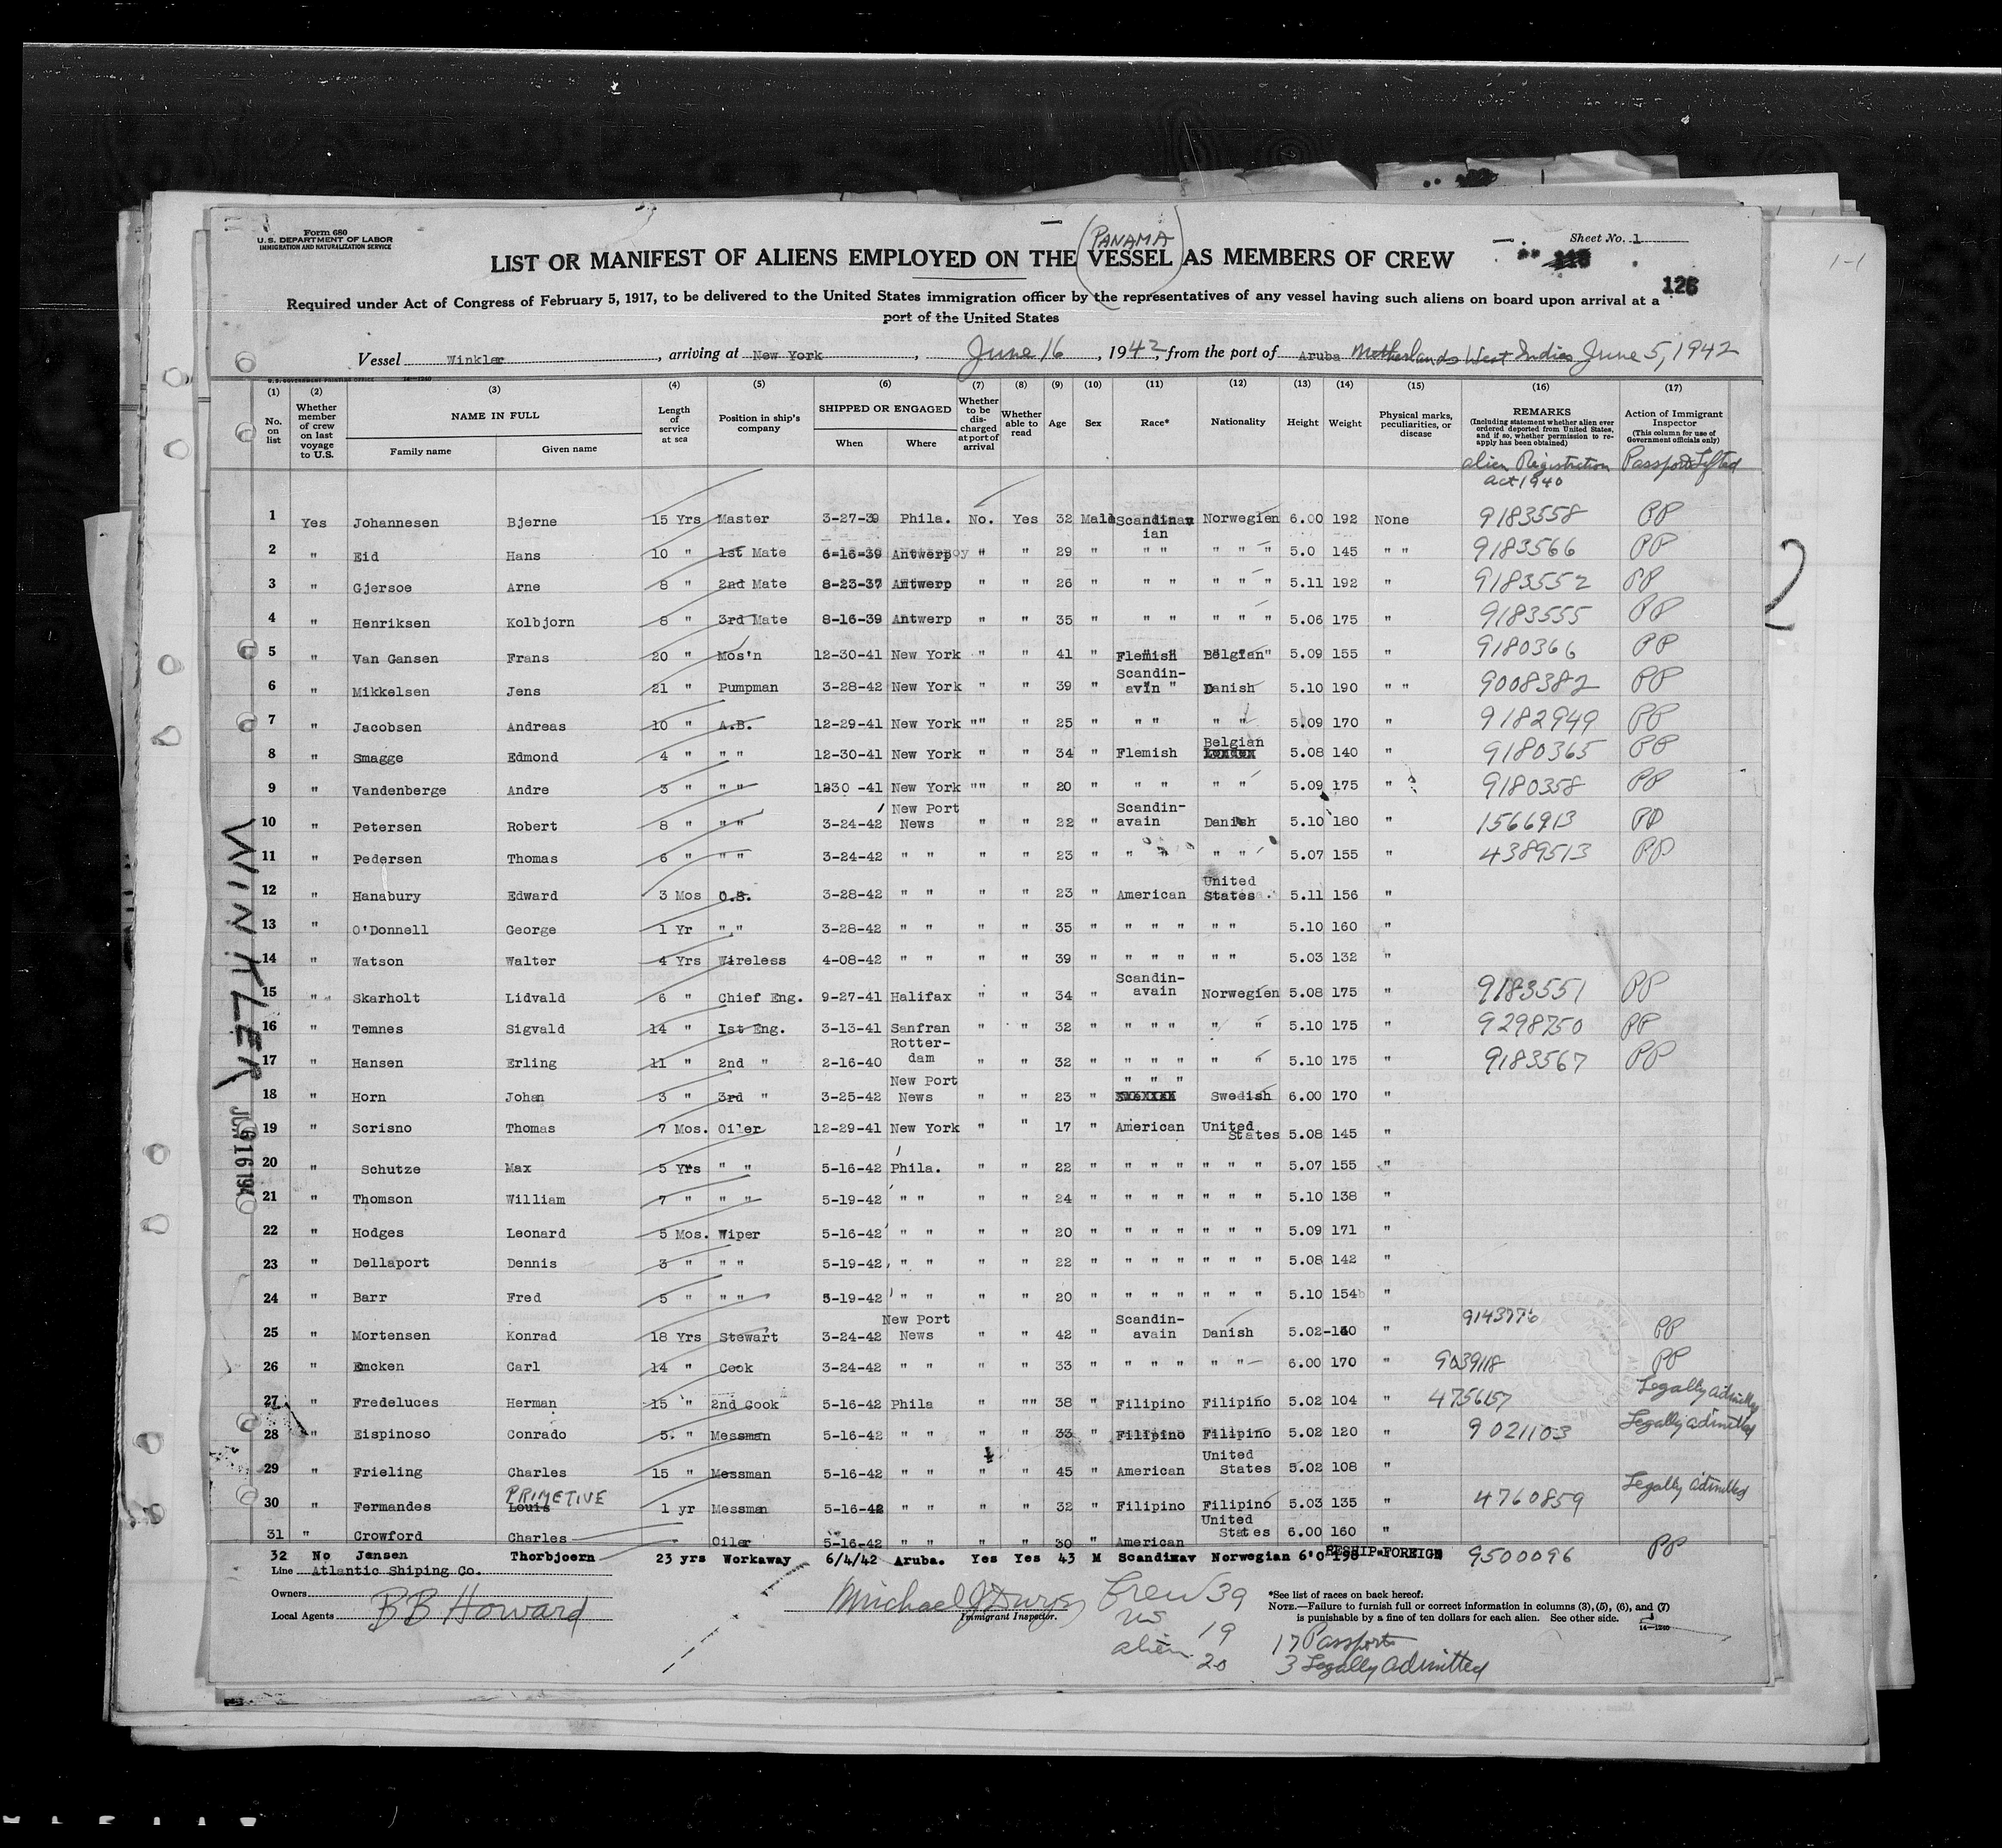 Form 680
U.S. DEPARTMENT OF LABOR
IMMIGRATION AND NATURALIZATION SERVICE
Sheet No. 1
(PANAMA)
LIST OR MANIFEST OF ALIENS EMPLOYED ON THE VESSEL AS MEMBERS OF CREW
126
1-1
Required under Act of Congress of February 5, 1917, to be delivered to the United States immigration officer by the representatives of any vessel having such aliens on board upon arrival at a
port of the United States
Vessel Winkler, arriving at New York, June 16, 1942, from the port of Aruba Netherlands West Indies June 5, 1942
U.S. GOVERNMENT PRINTING OFFICE 14-1240
(1) (2) (3) (4) (5) (6) (7) (8) (9) (10) (11) (12) (13) (14) (15) (16) (17)
No. on list
Whether member of crew on last voyage to U.S.
NAME IN FULL
Family name Given name
Length of service at sea
Position in ship's company
SHIPPED OR ENGAGED
When Where
Whether to be discharged at port of arrival
Whether able to read
Age Sex Race* Nationality Height Weight
Physical marks, peculiarities, or disease
REMARKS
(Including statement whether alien ever ordered deported from United States, and if so, whether permission to reapply has been obtained)
Action of Immigrant Inspector
(This column for use of Government officials only)
Alien Registration Act 1940
Passports Lifted
1 Yes Johannesen Bjerne 15 Yrs Master 3-27-39 Phila. No. Yes 32 Male Scandinavian Norwegien 6.00 192 None 9183558 PP
2 " Eid Hans 10 " 1st Mate 6-13-39 Antwerp " " 29 " " " " " " 5.0 145 " " 9183566 PP
3 " Gjersoe Arne 8 " 2nd Mate 8-23-37 Antwerp " " 26 " " " " " " 5.11 192 " 9183552 PP
4 " Henriksen Kolbjorn 8 " 3rd Mate 8-16-39 Antwerp " " 35 " " " " " " 5.06 175 " 9183555 PP
5 " Van Gansen Frans 20 " Mos'n 12-30-41 New York " " 41 " Flemish Belgian" 5.09 155 " 9180366 PP
6 " Mikkelsen Jens 21 " Pumpman 3-28-42 New York " " 39 " Scandin-avin " Danish 5.10 190 " " 9008382 PP
7 " Jacobsen Andreas 10 " A.B. 12-29-41 New York "" " 25 " " " " " 5.09 170 " 9182949 PP
8 " Smagge Edmond 4 " " " 12-30-41 New York " " 34 " Flemish Belgian 5.08 140 " 9180365 PP
9 " Vandenberge Andre 3 " " " 1230 -41 New York "" " 20 " " " " " 5.09 175 " 9180358 PP
10 " Petersen Robert 8 " " " 3-24-42 New Port News " " 22 " Scandin-avain Danish 5.10 180 " 1566913 PP
11 " Pedersen Thomas 6 " " " 3-24-42 " " " " 23 " " " " " 5.07 155 " 4389513 PP
12 " Hanabury Edward 3 Mos O.S. 3-28-42 " " " " 23 " American United States. 5.11 156 "
13 " O'Donnell George 1 Yr " " 3-28-42 " " " " 35 " " " " " " 5.10 160 "
14 " Watson Walter 4 Yrs Wireless 4-08-42 " " " " 39 " " " " " " 5.03 132 "
15 " Skarholt Lidvald 6 " Chief Eng. 9-27-41 Halifax " " 34 " Scandin-avain Norwegien 5.08 175 " 9183551 PP
16 " Temnes Sigvald 14 " Ist Eng. 3-13-41 Sanfran " " 32 " " " " " " 5.10 175 " 9298750 PP
17 " Hansen Erling 11 " 2nd " 2-16-40 Rotter-dam " " 32 " " " " " " 5.10 175 " 9183567 PP
18 " Horn Johan 3 " 3rd " 3-25-42 New Port News " " 23 " " " " Swedish 6.00 170 "
19 " Scrisno Thomas 7 Mos. Oiler 12-29-41 New York " " 17 " American United States 5.08 145 "
20 " Schutze Max 5 Yrs " " 5-16-42 Phila. " " 22 " " " " " " " 5.07 155 "
21 " Thomson William 7 " " " 5-19-42 " " " " 24 " " " " " " " 5.10 138 "
22 " Hodges Leonard 5 Mos. Wiper 5-16-42 " " " " 20 " " " " " " " 5.09 171 "
23 " Dellaport Dennis 3 " " " 5-19-42 " " " " 22 " " " " " " " 5.08 142 "
24 " Barr Fred 5 " " " 5-19-42 " " " " 20 " " " " " " " 5.10 154 "
25 " Mortensen Konrad 18 Yrs Stewart 3-24-42 New Port News " " 42 " Scandin-avain Danish 5.02-140 " 9143776 PP
26 " Emcken Carl 14 " Cook 3-24-42 " " " " 33 " " " " " " 6.00 170 " 9039118 PP
27 " Fredeluces Herman 15 " 2nd Cook 5-16-42 Phila " "" 38 " Filipino Filipino 5.02 104 " 4756157 Legally admitted
28 " Eispinoso Conrado 5. " Messman 5-16-42 " " " " 33 " Filipino Filipino 5.02 120 " 9021103 Legally admitted
29 " Frieling Charles 15 " Messman 5-16-42 " " " " 45 " American United States 5.02 108 "
30 " Fermandes Louis PRIMETIVE 1 yr Messman 5-16-42 " " " " 32 " Filipino Filipino 5.03 135 " 4760859 Legally admitted
31 " Crowford Charles Oiler 5-16-42 " " " " 30 " American United States 6.00 160 "
32 No Jensen Thorbjoern 23 yrs Workaway 6/4/42 Aruba. Yes Yes 43 M Scandinav Norwegian 6'0 198 RESHIP FOREIGN 9500096 PP
Line Atlantic Shiping Co.
Owners
Local Agents BB Howard
Immigrant Inspector.
Crew 39
US 19
alien 20
17 Passports
3 Legally Admitted
*See list of races on back hereof.
NOTE.—Failure to furnish full or correct information in columns (3), (5), (6), and (7)
is punishable by a fine of ten dollars for each alien. See other side.
14-1240
WINKLER
JUN 16 194
2